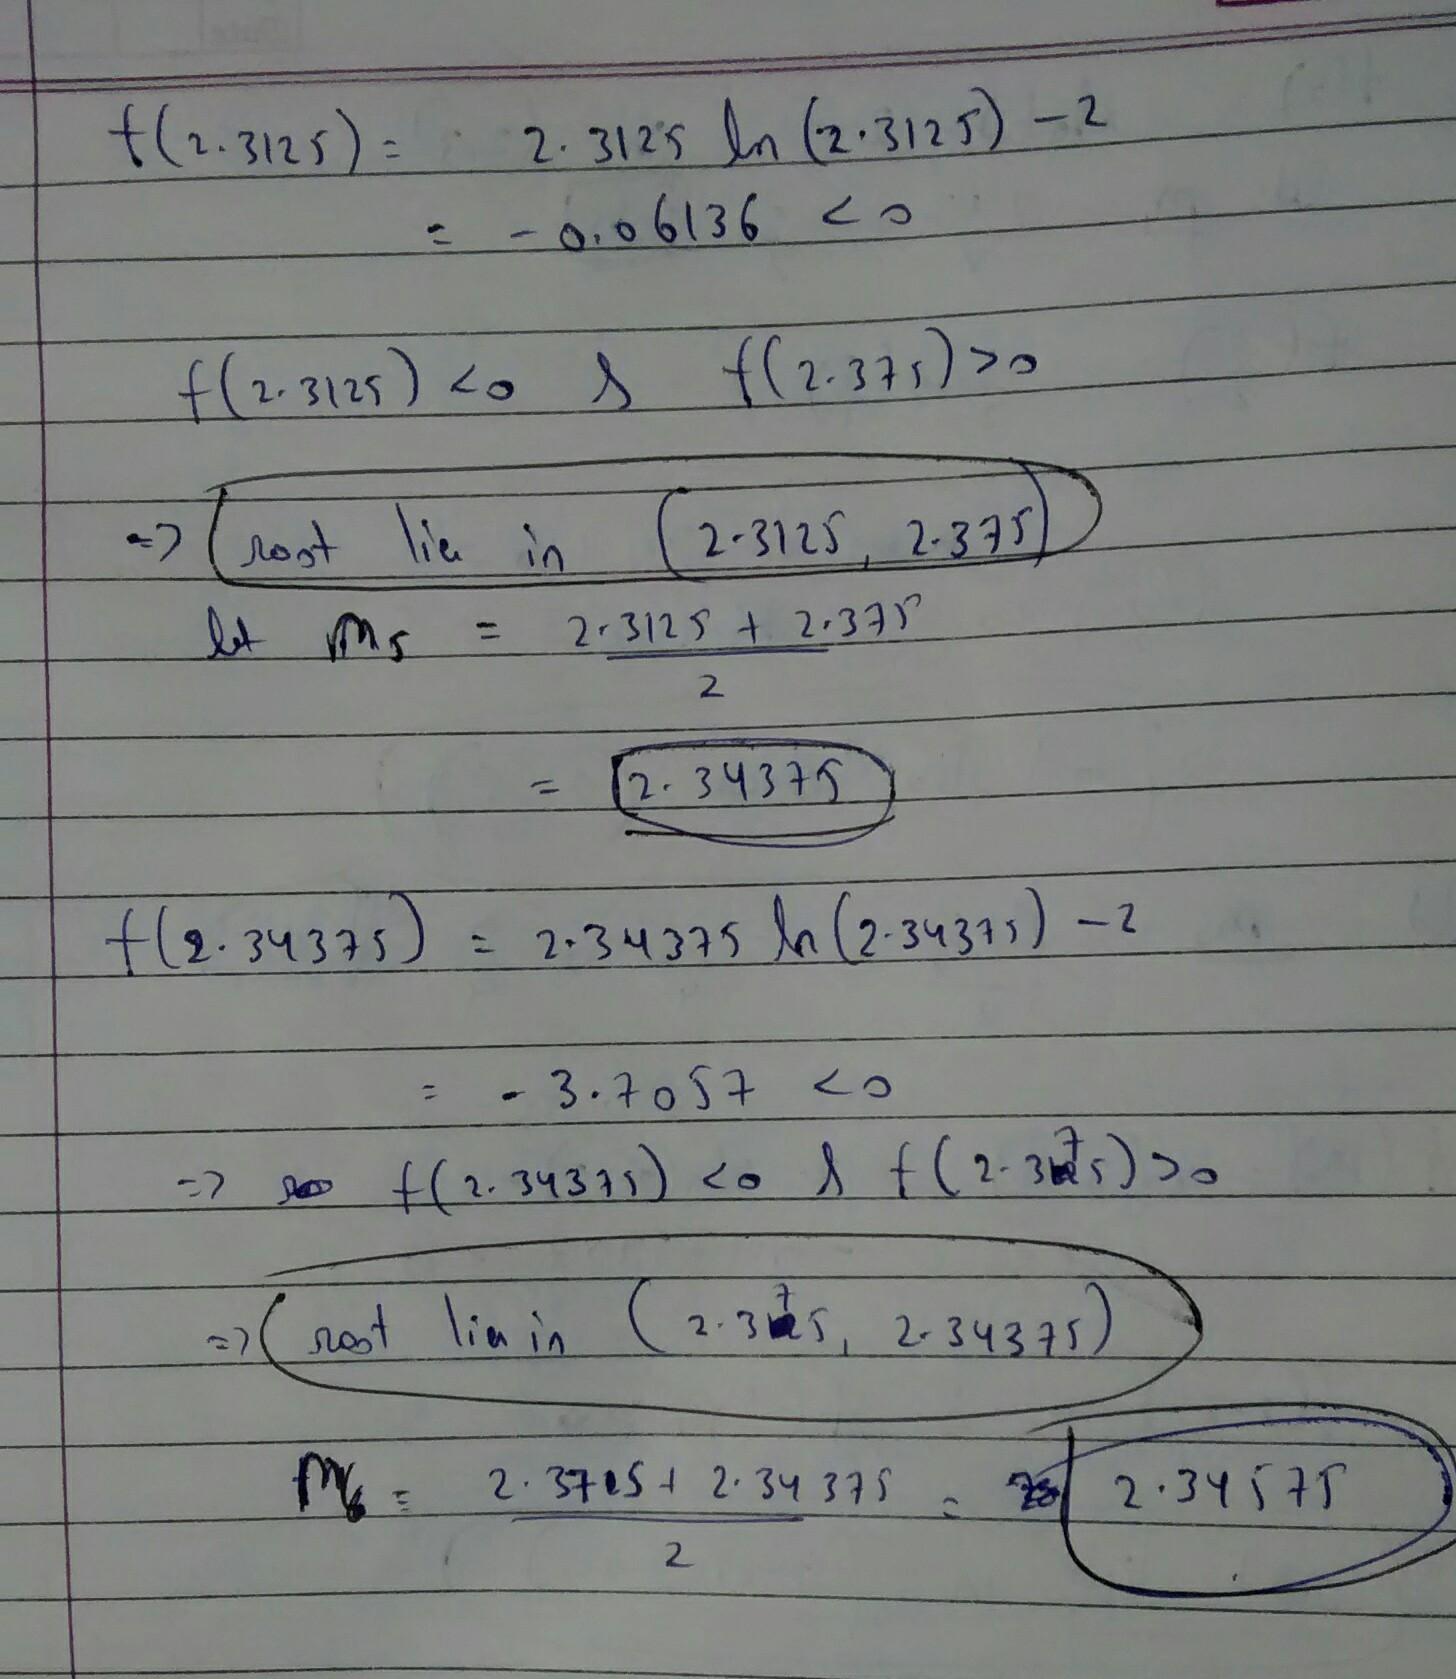 f(2.3125) = 2.3125 ln (2.3125) - 2
= - 0.06136 < 0
f(2.3125) < 0 & f(2.375) > 0
=> root lie in (2.3125, 2.375)
let m5 = 2.3125 + 2.375
2
= 2.34375
f(2.34375) = 2.34375 ln (2.34375) - 2
= - 3.7057 < 0
=> f(2.34375) < 0 & f(2.375) > 0
=> root lie in (2.375, 2.34375)
m6 = 2.3725 + 2.34375 = 2.34575
2